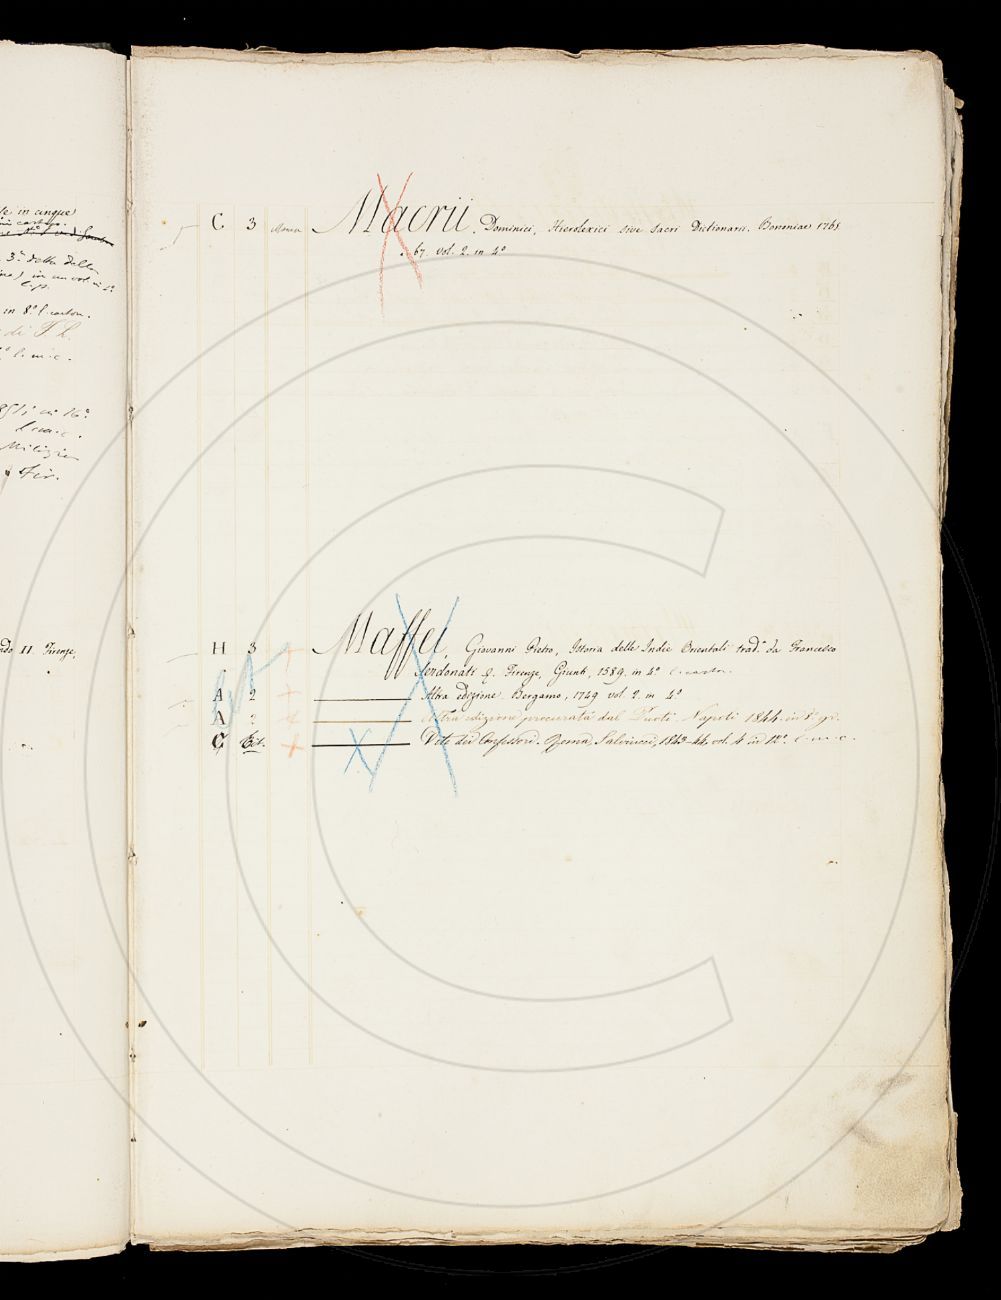 le in cinque
3.ª della della
in un vol. in 4.º
in 8.º l. carton.
di F. L.
l. m. c.
in 16.º
l. m. c.
Fir.
ndo II. Firenze,
C 3 Manca Macrii, Dominici, Hierolexici sive Sacri Dictionarii. Bononiae 1765
67. vol. 2. in 4º
H 3 Maffei, Giovanni Pietro, Istoria delle Indie Orientali trad.ª da Francesco
Serdonati &. Firenze, Giunti, 1589. in 4º l. carton.
A 2 Altra edizione. Bergamo, 1749 vol. 2. in 4º
A 2 Altra edizione procurata dal Puoti. Napoli 1844. in 8º gr.
C Vite dei Confessori. Roma, Salviucci, 1843-44, vol. 4 in 12º. l. m. c.